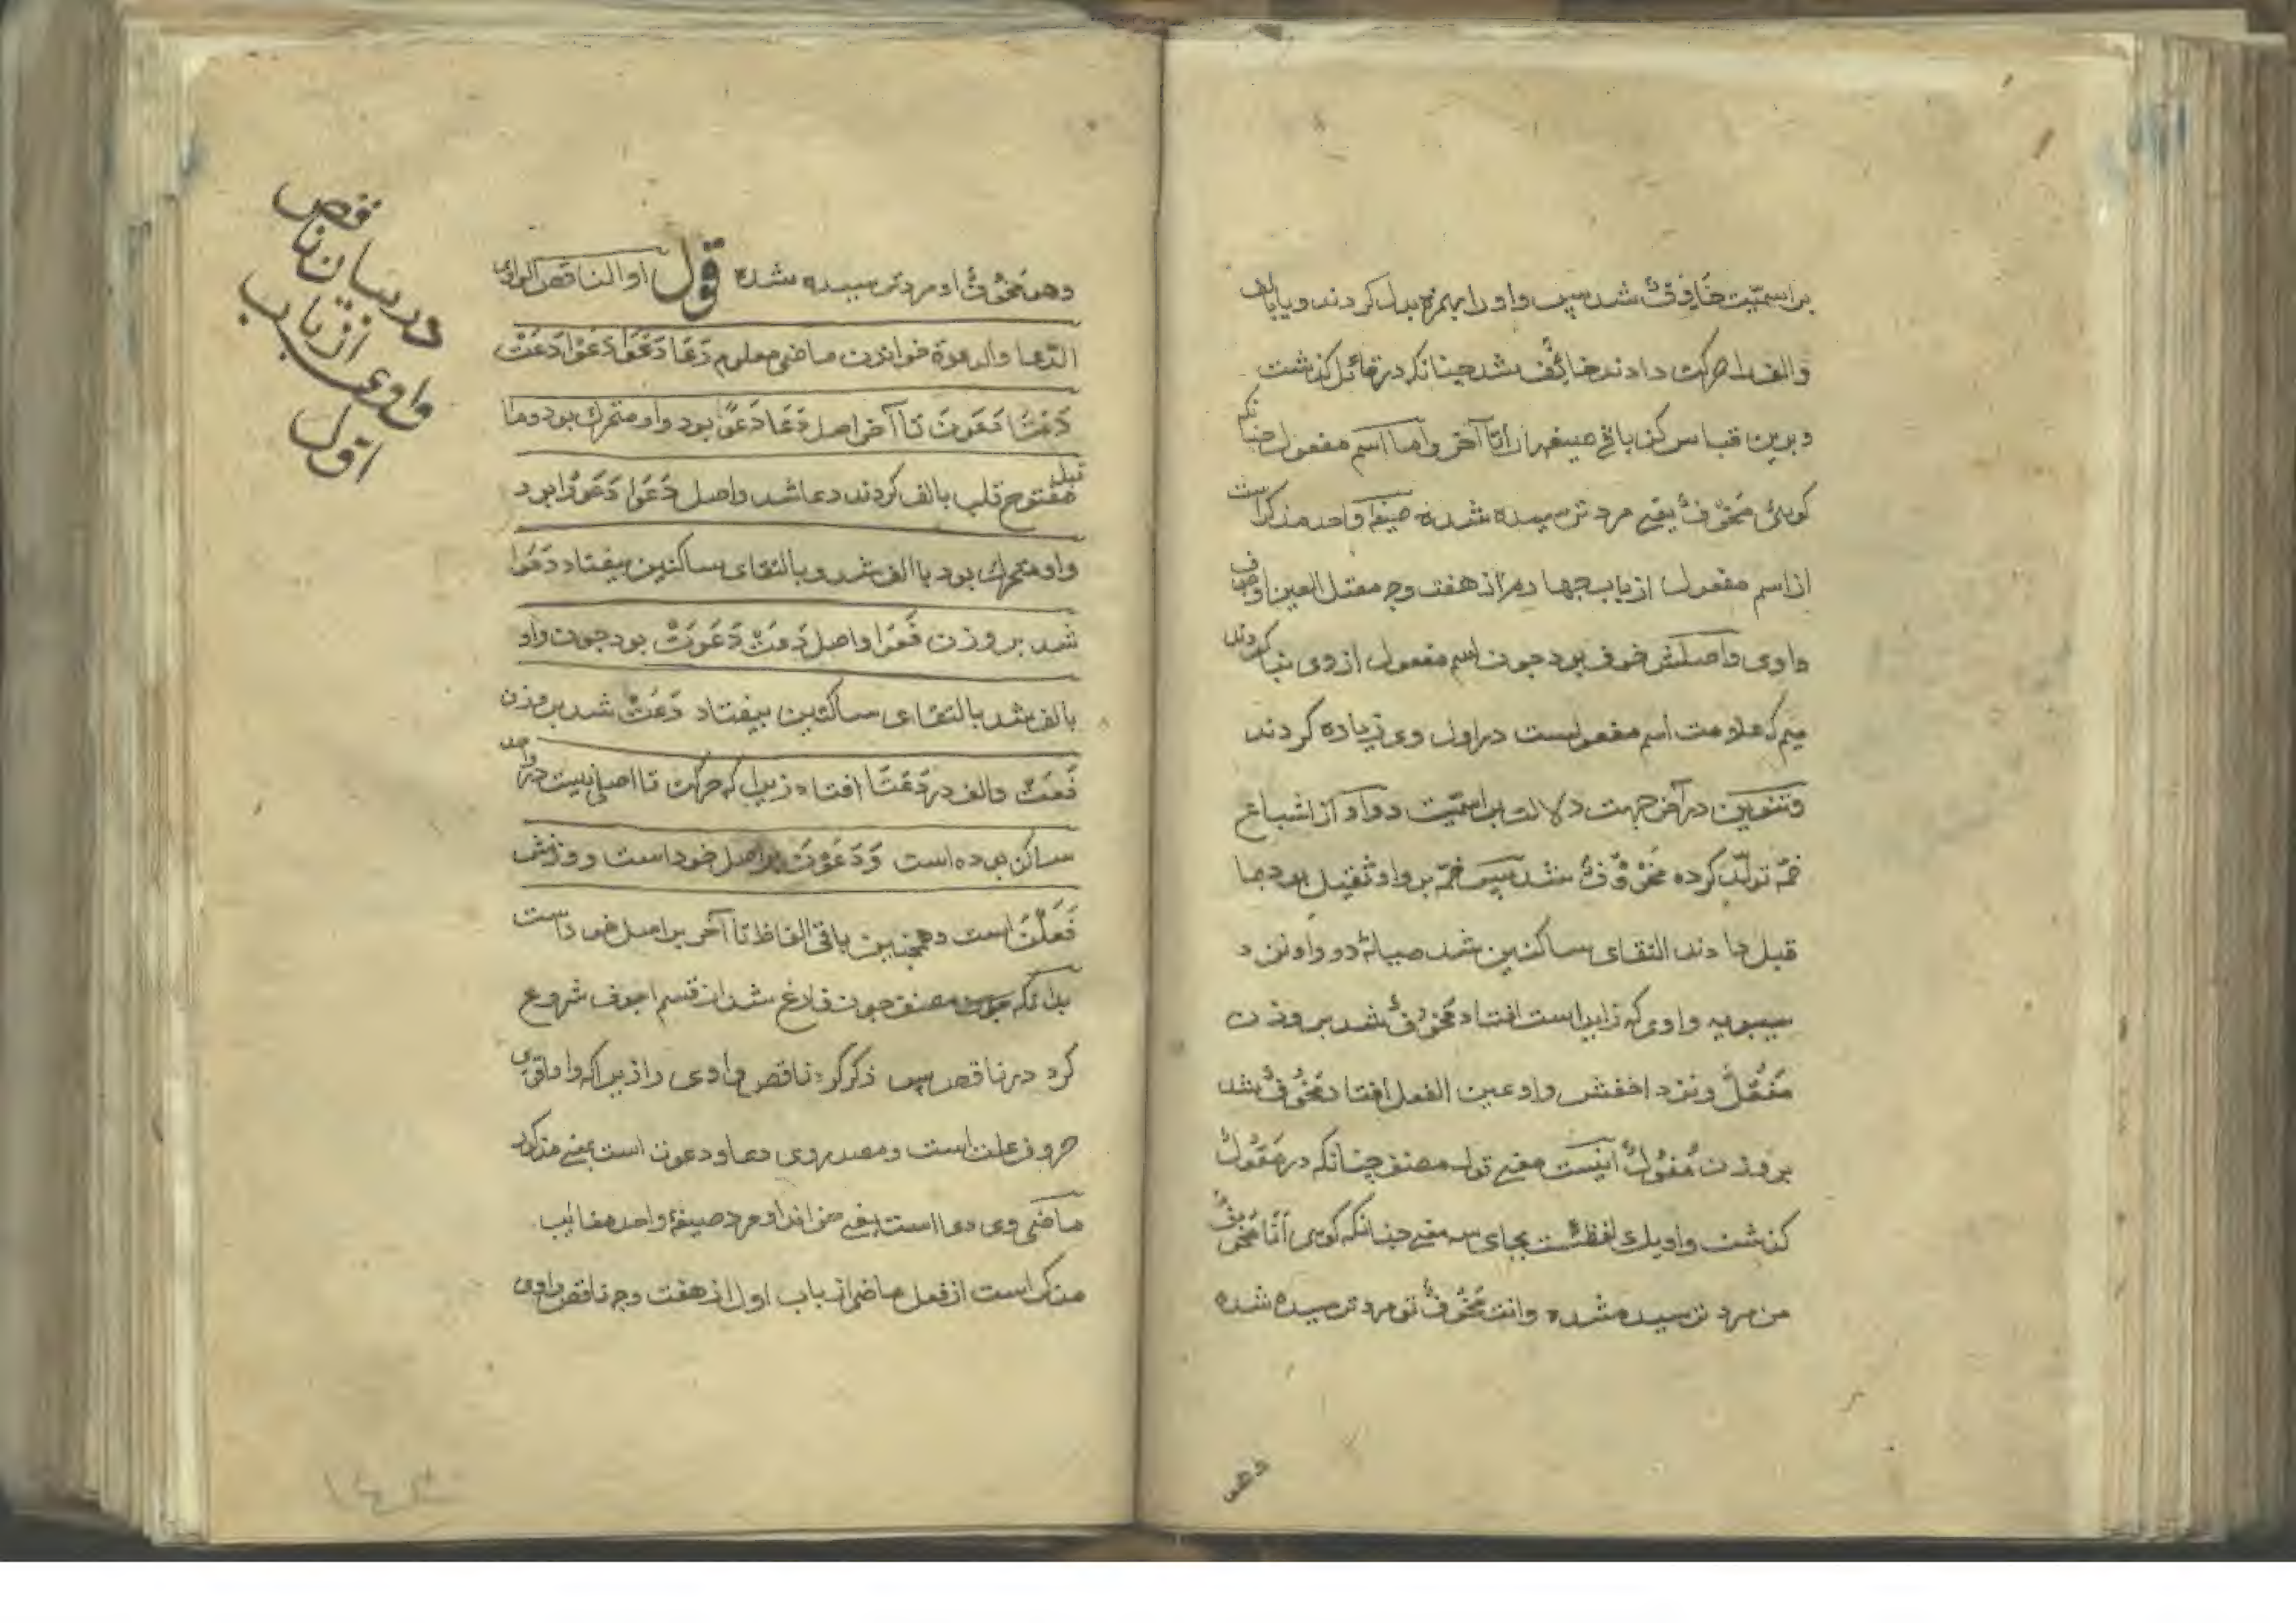 بر اسمیّت خَاوِفٌ شد سپس واو را بهمزه بدل کردند و یا بالف
والف را حرکت دادند خائِف شد چنانکه در قائل گذشت
و برین قیاس کن باقی صیغها را تا آخر و اما اسم مفعول چنانکه
گوئی مَخُوْفٌ یعنی مرد ترسیده شده صیغه واحد مذکر است
از اسم مفعول از باب چهارم از هفت وجه معتل العین اجوف
واوی و اصلش خوف بود چون اسم مفعول از وی بنا کردند
میم که علامت اسم مفعولست در اول وی زیاده کردند
و تنوین در آخر جهت دلالت بر اسمیّت و واو از اشباع
ضمّه تولّد کرده مَخْوُوْفٌ شد سپس ضمّه بر واو ثقیل بود بما
قبل دادند التقای ساکنین شد میانهٔ دو واو نزد
سیبویه واوی که زاید است افتاد مَخُوْفٌ شد بر وزن
مَفُعْلٌ و نزد اخفش واو عین الفعل افتاد مَخُوْفٌ شد
بر وزن مَفُوْلٌ اینست معنی قول مصنف چنانکه در مَقُوْلٌ
گذشت و او یک لفظست بجای سه معنی چنانکه گویی اَنَا مَخُوْفٌ
من مرد ترسیده شده و انت مَخُوْفٌ تو مرد ترسیده شده
وهو
وهو مَخُوْفٌ او مرد ترسیده شده قول او الناقص الواوی
الدّعا والدعوة خواندن ماضی معلوم دَعَا دَعَوَا دَعَوْا دَعَتْ
دَعَتَا دَعَوْنَ تا آخر اصل دَعَا دَعَوَ بود واو متحرک بود و ما
قبل مفتوح قلب بالف کردند دعا شد و اصل دَعَوْا دَعَوُوْا بود
واو متحرک بود با الف شد و بالتقای ساکنین بیفتاد دَعَوْا
شد بر وزن فَعَوْا و اصل دَعَتْ دَعَوَتْ بود چون واو
بالف شد بالتقای ساکنین بیفتاد دَعَتْ شد بر وزن
فَعَتْ و الف در دَعَتَا افتاد زیرا که حرکت تا اصلی نیست در واحد
ساکن بوده است وَدَعَوْنَ بر اصل خود است و وزنش
فَعَلْنَ است و همچنین باقی الفاظ تا آخر بر اصل خود است
بدانکه مصنف چون فارغ شد از قسم اجوف شروع
کرد در ناقص سپس ذکر کرد ناقص واوی را زیرا که واو اقوی
حروف علت است و مصدر وی دعا و دعوت است یعنی مذکور
ماضی وی دعا است یعنی خواند او مرد صیغهٔ واحد مغایب
مذکر است از فعل ماضی از باب اول از هفت وجه ناقص واوی
در بیان ناقص
واوی از باب
اوّل